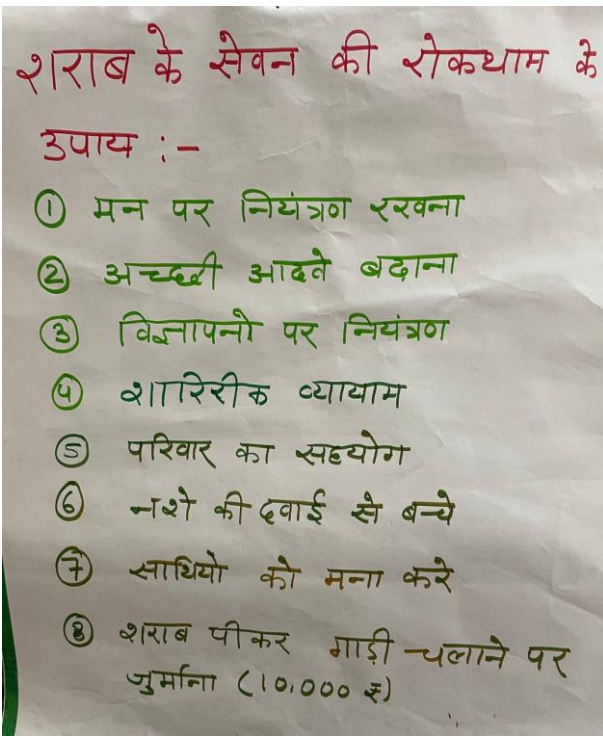 शराब के सेवन की रोकथाम के
उपाय :-
① मन पर नियंत्रण रखना
② अच्छी आदते बढ़ाना
③ विज्ञापनो पर नियंत्रण
④ शारिरीक व्यायाम
⑤ परिवार का सहयोग
⑥ नशे की दवाई से बच्चे
⑦ साथियो को मना करे
⑧ शराब पीकर गाड़ी चलाने पर
जुर्माना (10,000 ₹)